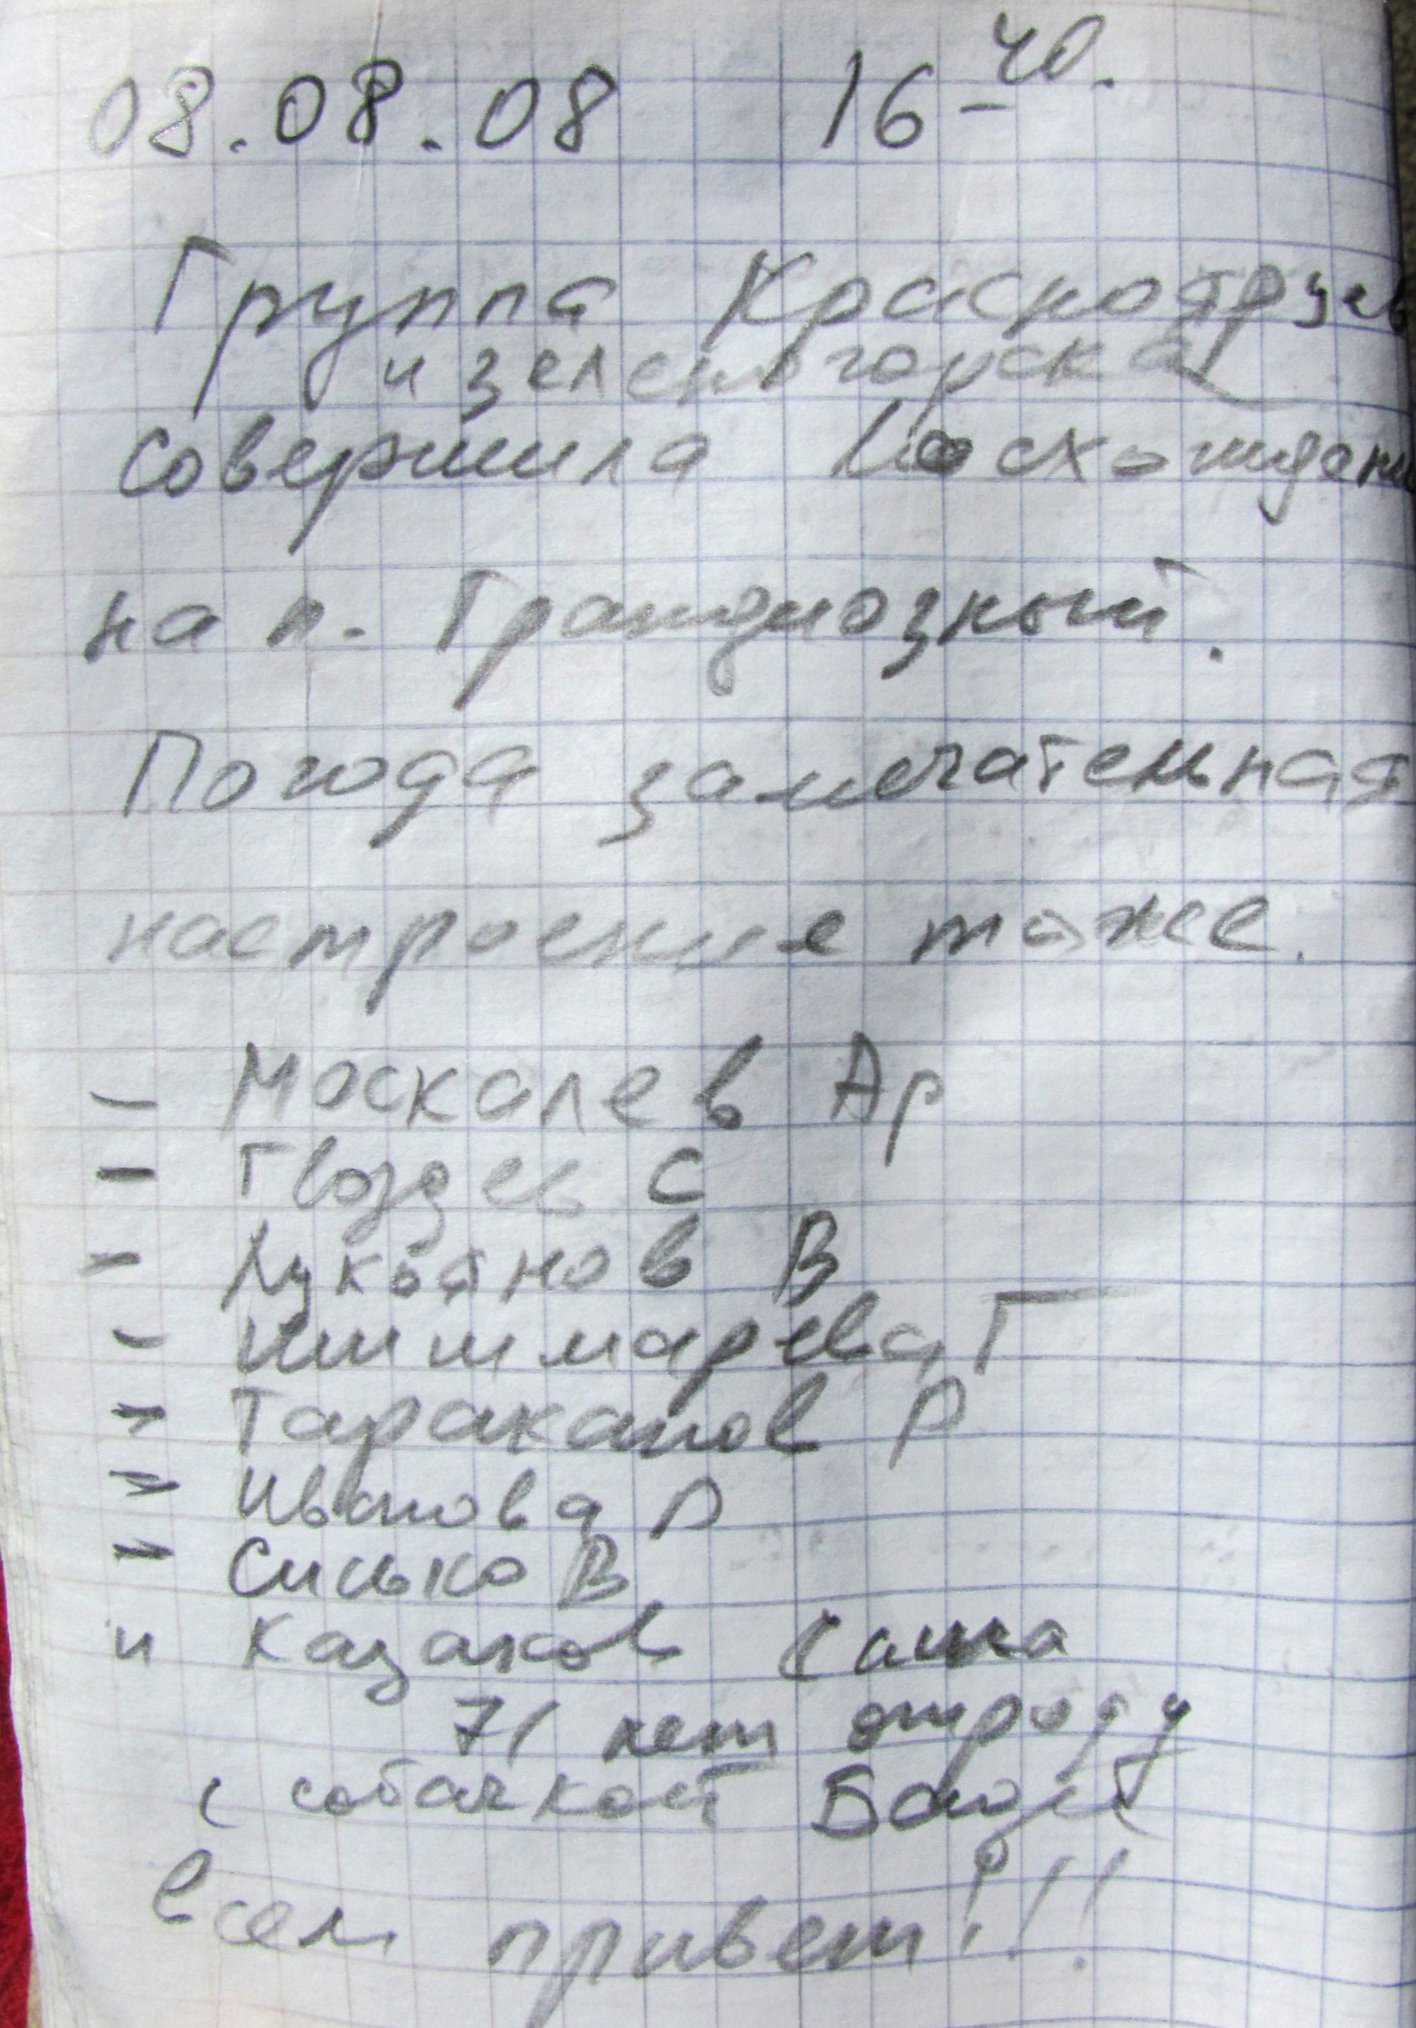 08.08.08 16-40.
Группа Красноярцев
и зеленогорска
совершила восхождени
на п. Грандиозный.
Погода замечательная
настроение тоже.
- Москалев Ар
- Гвоздев С
- Лукьянов В
- Шишмарева Г
- Тараканов Р
- Иванова Л
- Сисько В
и Казаков Саша
71 лет отроду
с собачкой
Всем привет!!!